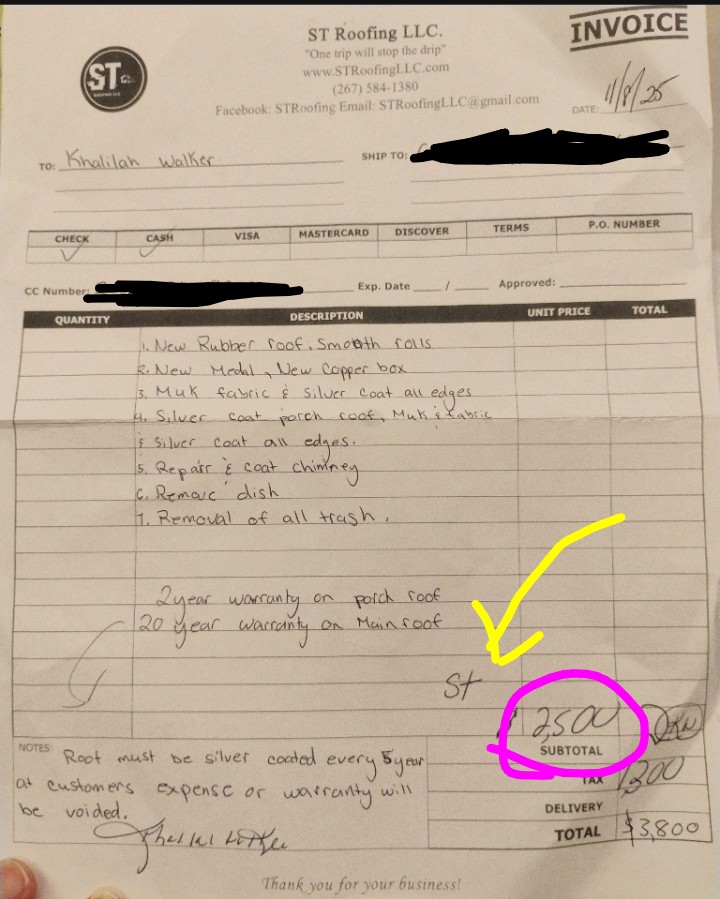 ST Roofing LLC.
"One trip will stop the drip"
www.STRoofingLLC.com
(267) 584-1380
Facebook: STRoofing Email: STRoofingLLC@gmail.com
INVOICE
ST
DATE: 11/8/25
TO: Khalilah Walker
SHIP TO:
CHECK CASH VISA MASTERCARD DISCOVER TERMS P.O. NUMBER
CC Number: Exp. Date / Approved:
QUANTITY DESCRIPTION UNIT PRICE TOTAL
1. New Rubber roof, Smooth rolls
2. New Medal, New Copper box
3. Muk fabric & Silver coat all edges
4. Silver coat porch roof, Muk & fabric
& Silver coat all edges.
5. Repair & coat chimney
6. Remove dish
7. Removal of all trash.
2 year warranty on porch roof
20 year warranty on Main roof
St
$ 2,500
SUBTOTAL
NOTES: Roof must be silver coated every 5 year
at customers expense or warranty will
be voided.
TAX 1,300
DELIVERY
TOTAL $3,800
Thank you for your business!